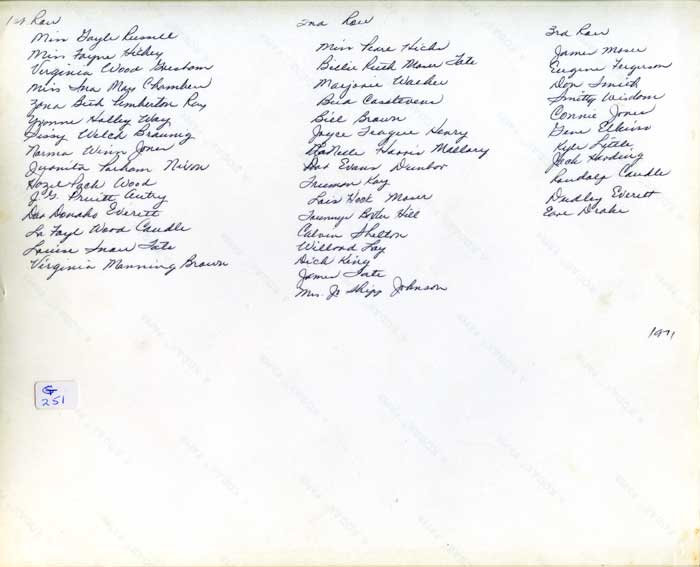 1st Row
Miss Gayle Russell
Miss Fayne Hickey
Virginia Wood Gresham
Miss Ina Mays Chambers
Zona Beth Pemberton Ray
Yvonne Holley Way
Sissy Welch Brauning
Norma Winn Jones
Jyonita Parham Nixon
Hazel Pack Wood
J.G. Pruitt Autry
Dea Donaho Everett
La Faye Wood Caudle
Louise Tate
Virginia Manning Brown
2nd Row
Miss Pearl Hicks
Billie Ruth Moser Tate
Marjorie Walker
Casstevens
Bill Brown
Joyce Teague Henry
LaNelle Harris Mallory
Evans Dunbar
Freeman Ray
Lois Hoot Moser
Hill
Calvin Shelton
Willord Lay
Dick King
James Tate
Mrs. Jo Shipp Johnson
3rd Row
James Moser
Eugene Ferguson
Don Smith
Smitty Wisdom
Connie Jones
Gene Elkins
Kyle Little
Jack Harding
Randolp Caudle
Dudley Everett
Drake
1971
G
251